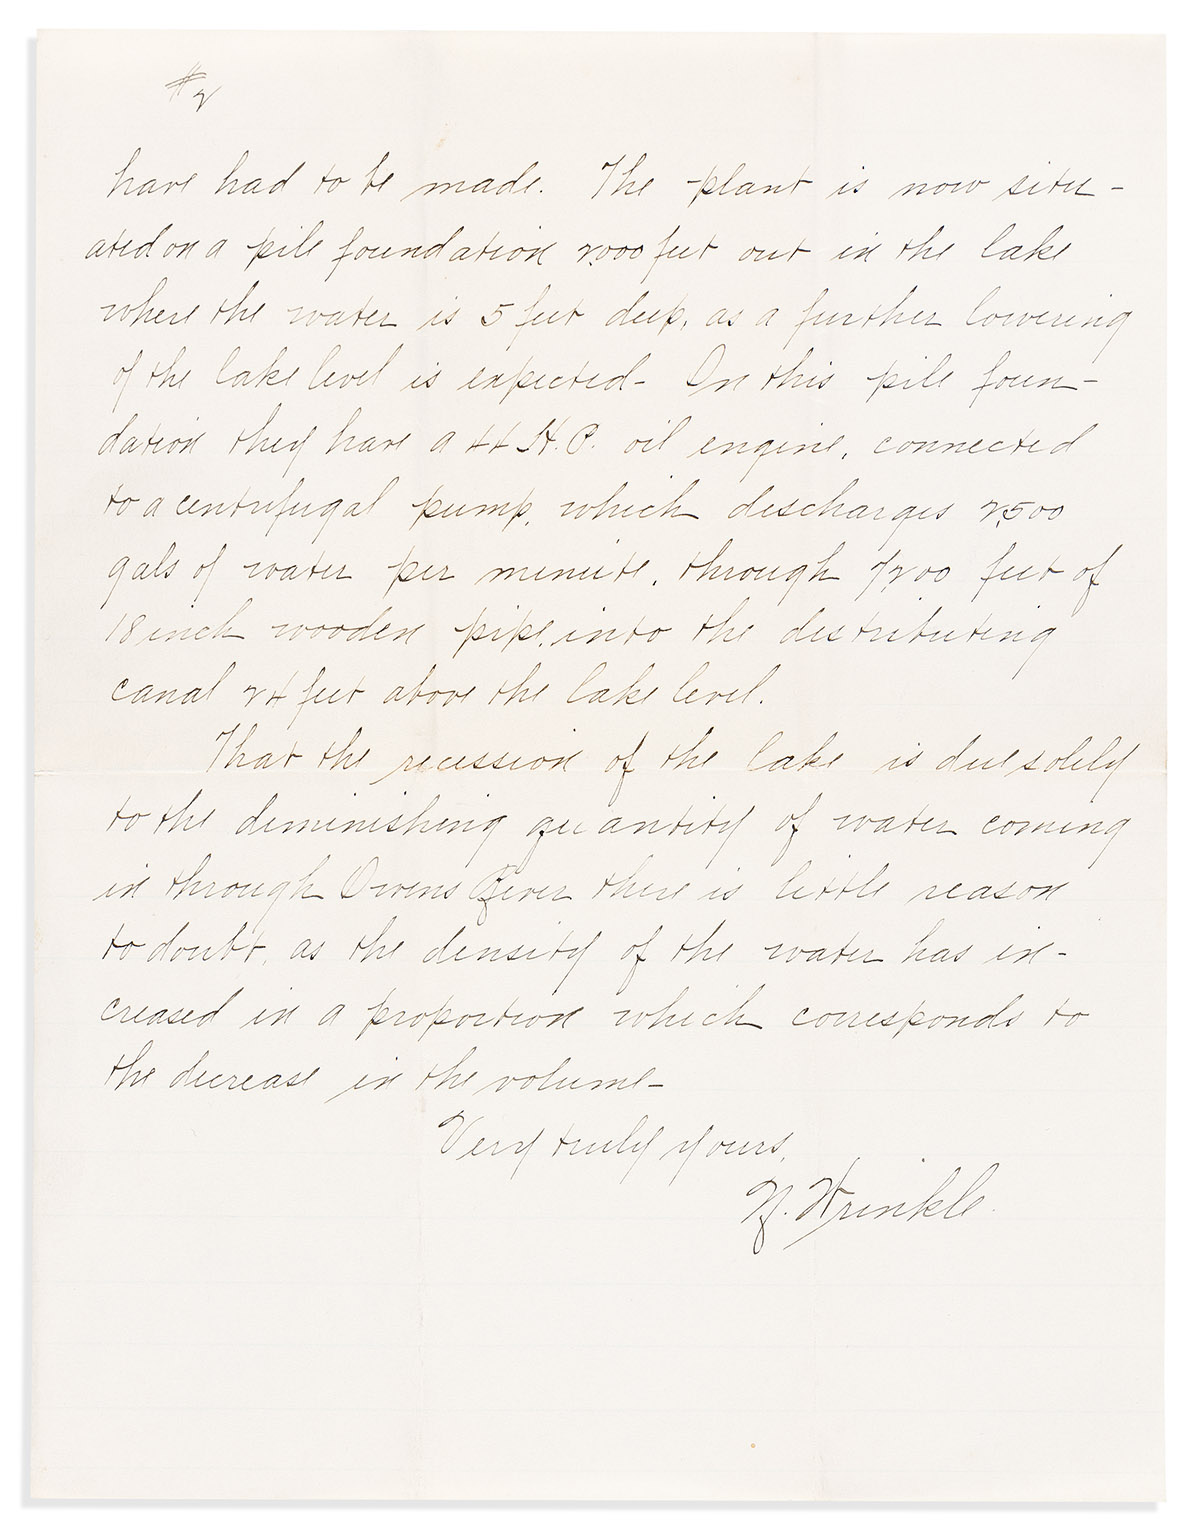 #2
have had to be made. The plant is now situ-
ated on a pile foundation 2000 feet out in the lake
where the water is 5 feet deep, as a further lowering
of the lake level is expected- On this pile foun-
dation they have a 44 H.P. oil engine, connected
to a centrifugal pump, which discharges 2,500
gals of water per minute, through 7,200 feet of
18 inch wooden pipe, into the distributing
canal 24 feet above the lake level.
That the recession of the lake is due solely
to the diminishing quantity of water coming
in through Owens River there is little reason
to doubt, as the density of the water has in-
creased in a proportion which corresponds to
the decrease in the volume-
Very truly yours,
N. Wrinkle.